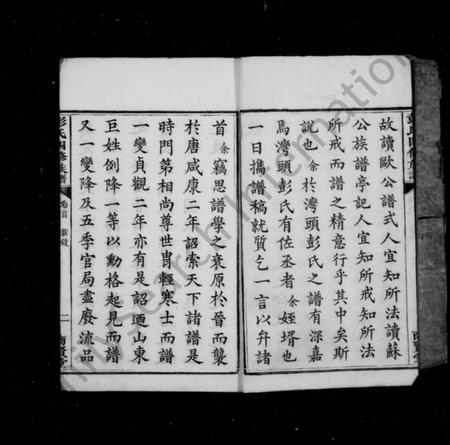 故讀歐公譜式人宜知所法讀蘇
公族譜亭記人宜知所戒知所法
所戒而譜之精意行乎其中矣斯
說也余於灣頭彭氏之譜有深嘉
焉灣頭彭氏有佐丞者余姪壻也
一日攜譜稿就質乞一言以弁諸
首余竊思譜學之衰原於晉而襲
於唐咸康二年詔索天下諸譜是
時門第相尚尊世冑輕寒士而譜
一變貞觀二年亦有是詔迺山東
巨姓例降一等以勳格起見而譜
又一變降及五季官局盡廢流品
彭氏四修族譜
卷首
新敘
二
南賢堂